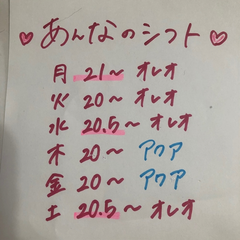 ♡あんなのシフト♡
月 21〜 オレオ
火 20〜 オレオ
水 20.5〜 オレオ
木 20〜 アクア
金 20〜 アクア
土 20.5〜 オレオ